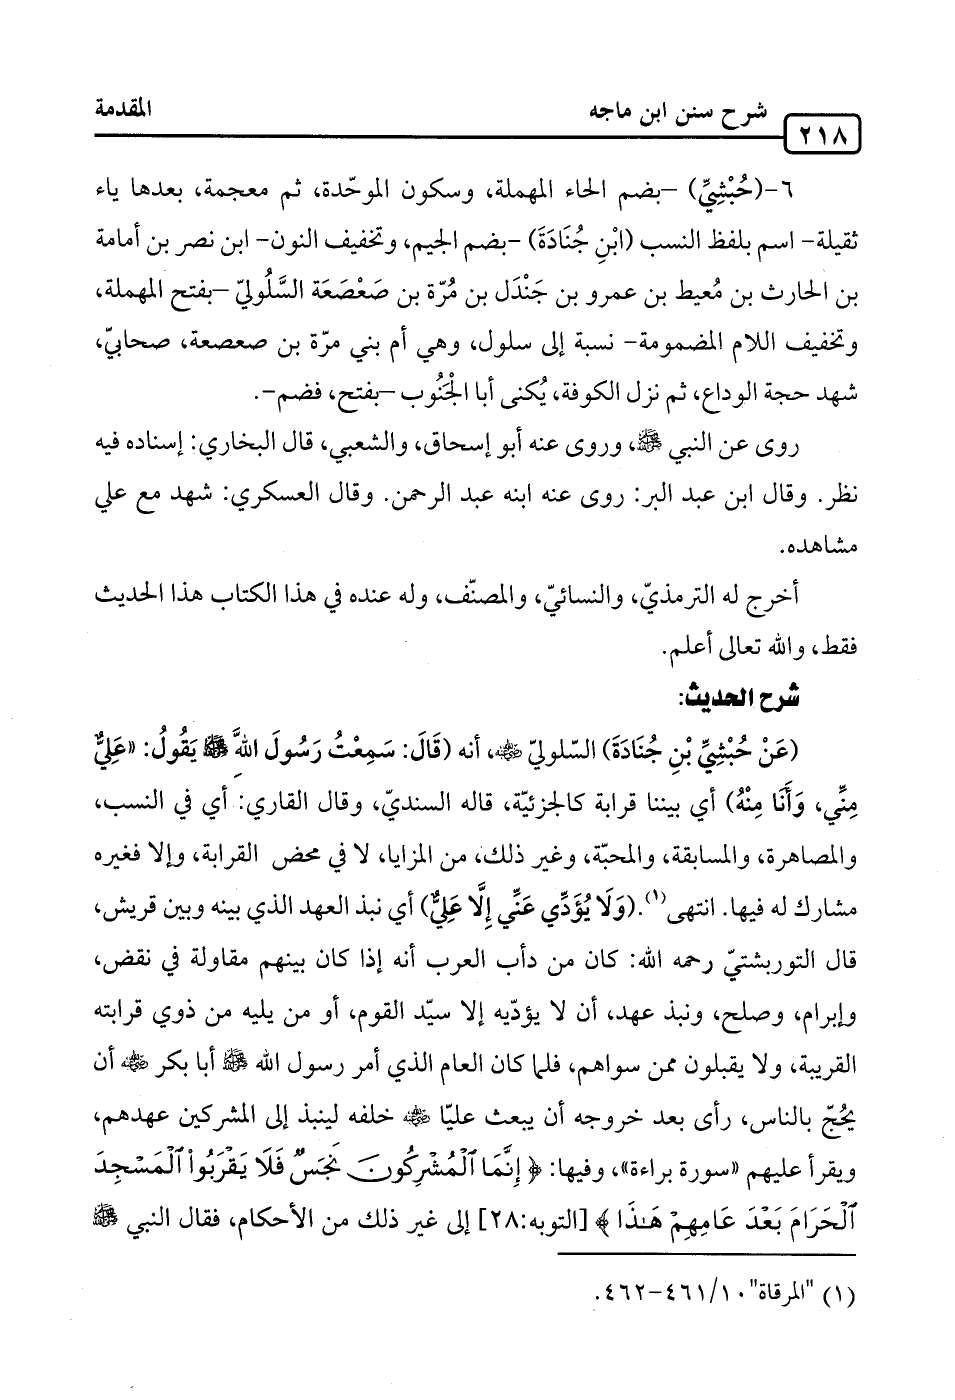 شرح سنن ابن ماجه
المقدمة
٢١٨
٦-(حُبْشِيِّ) –بضم الحاء المهملة، وسكون الموحّدة، ثم معجمة، بعدها ياء
ثقيلة– اسم بلفظ النسب (ابْنِ جُنَادَةَ) –بضم الجيم، وتخفيف النون– ابن نصر بن أمامة
بن الحارث بن مُعيط بن عمرو بن جَنْدَل بن مُرّة بن صَعْصَعَة السَّلُوليّ –بفتح المهملة،
وتخفيف اللام المضمومة– نسبة إلى سلول، وهي أم بني مرّة بن صعصعة، صحابيّ،
شهد حجة الوداع، ثم نزل الكوفة، يُكنى أبا الْجَنُوب –بفتح، فضم–.
روى عن النبي ﷺ، وروى عنه أبو إسحاق، والشعبي، قال البخاري: إسناده فيه
نظر. وقال ابن عبد البر: روى عنه ابنه عبد الرحمن. وقال العسكري: شهد مع علي
مشاهده.
أخرج له الترمذيّ، والنسائيّ، والمصنّف، وله عنده في هذا الكتاب هذا الحديث
فقط، والله تعالى أعلم.
شرح الحديث:
(عَنْ حُبْشِيِّ بْنِ جُنَادَةَ) السّلوليّ رضي الله عنه، أنه (قَالَ: سَمِعْتُ رَسُولَ اللهِ ﷺ يَقُولُ: «عَلِيٌّ
مِنِّي، وَأَنَا مِنْهُ) أي بيننا قرابة كالجزئيّة، قاله السنديّ، وقال القاري: أي في النسب،
والمصاهرة، والمسابقة، والمحبّة، وغير ذلك، من المزايا، لا في محض القرابة، وإلا فغيره
مشارك له فيها. انتهى(١).(وَلَا يُؤَدِّي عَنِّي إِلَّا عَلِيٌّ) أي نبذ العهد الذي بينه وبين قريش،
قال التوربشتيّ رحمه الله: كان من دأب العرب أنه إذا كان بينهم مقاولة في نقض،
وإبرام، وصلح، ونبذ عهد، أن لا يؤدّيه إلا سيّد القوم، أو من يليه من ذوي قرابته
القريبة، ولا يقبلون ممن سواهم، فلما كان العام الذي أمر رسول الله ﷺ أبا بكر رضي الله عنه أن
يحُجّ بالناس، رأى بعد خروجه أن يبعث عليّا رضي الله عنه خلفه لينبذ إلى المشركين عهدهم،
ويقرأ عليهم «سورة براءة»، وفيها: ﴿ إِنَّمَا ٱلْمُشْرِكُونَ نَجَسٌ فَلَا يَقْرَبُوا۟ ٱلْمَسْجِدَ
ٱلْحَرَامَ بَعْدَ عَامِهِمْ هَـٰذَا ﴾ [التوبه:٢٨] إلى غير ذلك من الأحكام، فقال النبي ﷺ
(١) "المرقاة" ١٠/ ٤٦١-٤٦٢.